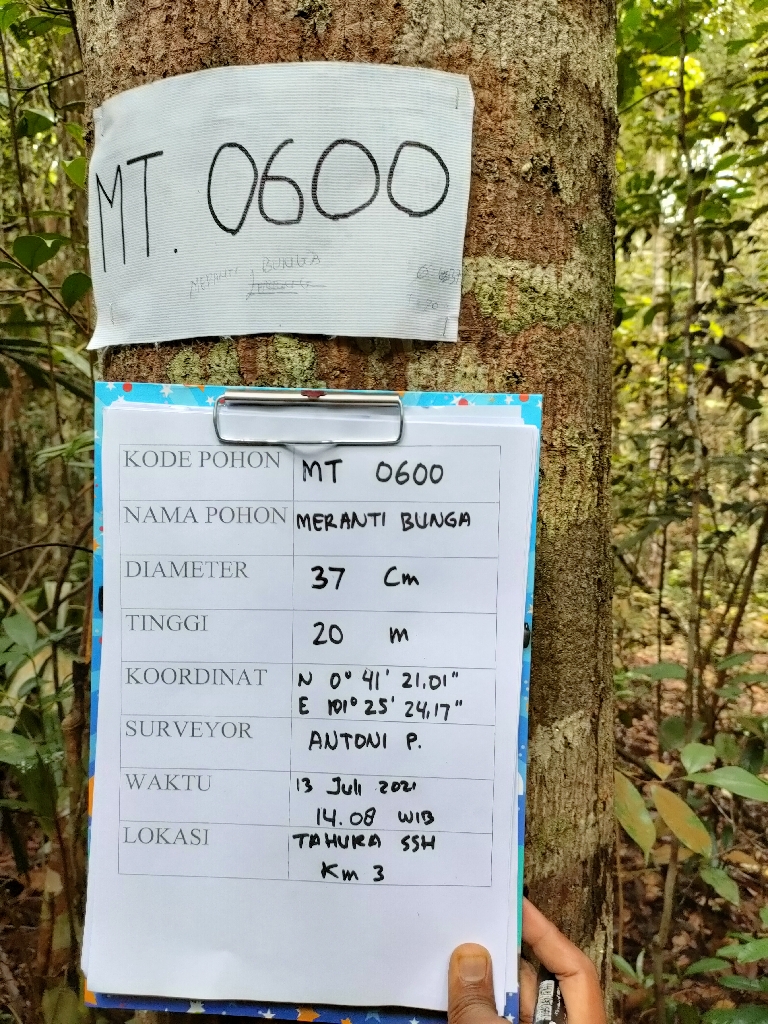 MT. 0600
MERANTI BUNGA
KODE POHON MT 0600
NAMA POHON MERANTI BUNGA
DIAMETER 37 Cm
TINGGI 20 m
KOORDINAT N 0° 41' 21.01"
E 101° 25' 24,17"
SURVEYOR ANTONI P.
WAKTU 13 Juli 2021
14.08 WIB
LOKASI TAHURA SSH
Km 3